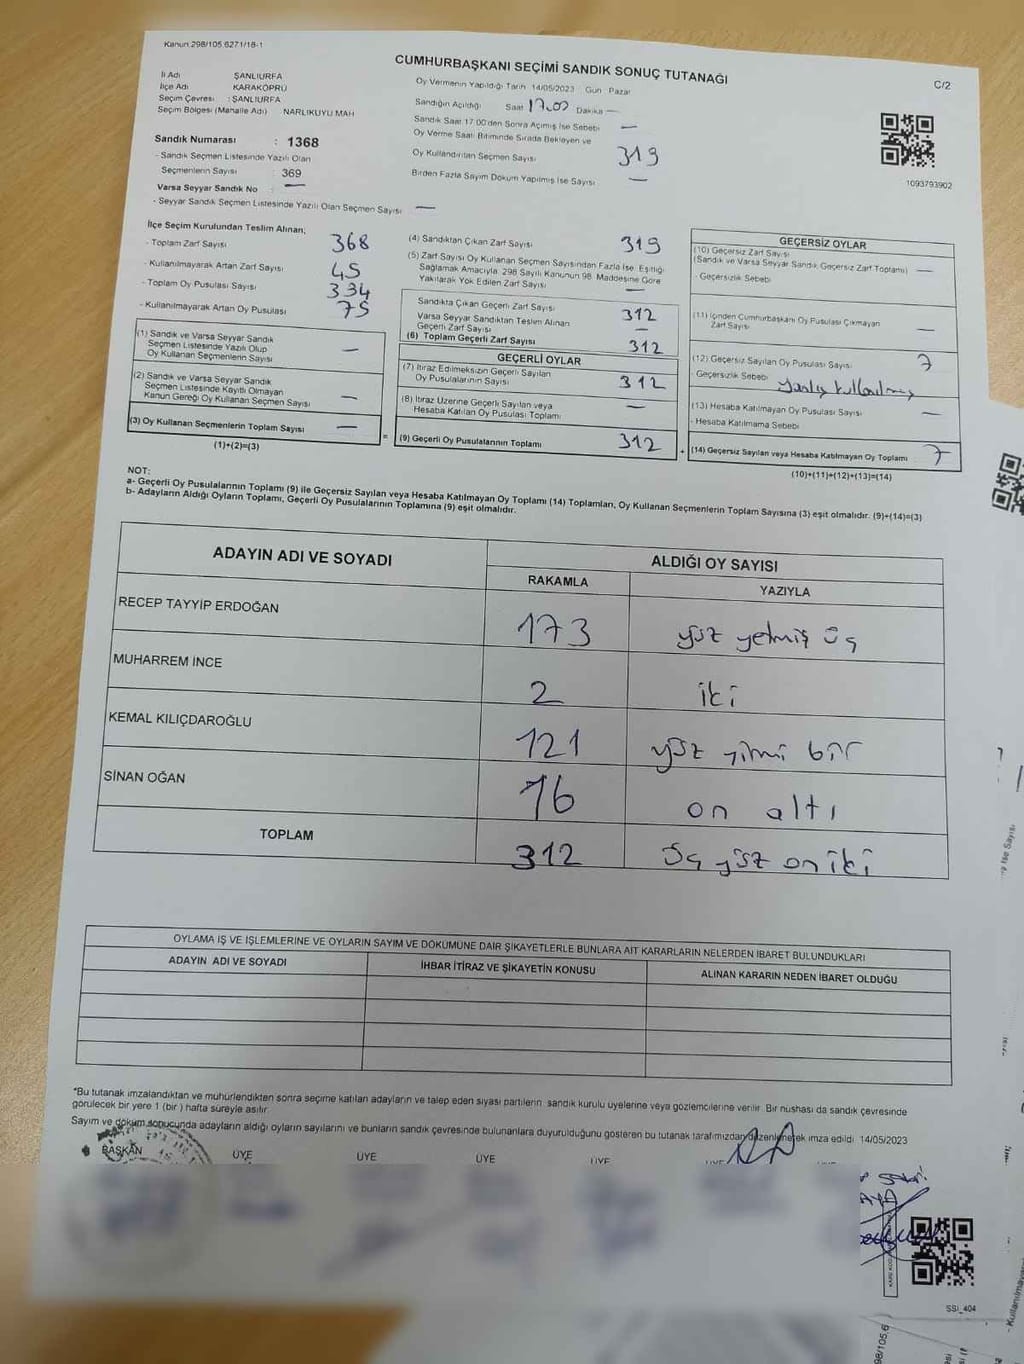 Kanun 298/105.6271/18-1
CUMHURBAŞKANI SEÇİMİ SANDIK SONUÇ TUTANAĞI
C/2
İl Adı ŞANLIURFA
İlçe Adı KARAKÖPRÜ
Seçim Çevresi : ŞANLIURFA
Seçim Bölgesi (Mahalle Adı) NARLIKUYU MAH
Sandık Numarası : 1368
- Sandık Seçmen Listesinde Yazılı Olan
Seçmenlerin Sayısı : 369
Varsa Seyyar Sandık No : —
- Seyyar Sandık Seçmen Listesinde Yazılı Olan Seçmen Sayısı —
Oy Vermenin Yapıldığı Tarih 14/05/2023 Gün Pazar
Sandığın Açıldığı Saat 17.00 Dakika —
Sandık Saat 17:00'den Sonra Açımış İse Sebebi —
Oy Verme Saati Bitiminde Sırada Bekleyen ve
Oy Kullandırılan Seçmen Sayısı 319
Birden Fazla Sayım Döküm Yapılmış İse Sayısı —
1093793902
İlçe Seçim Kurulundan Teslim Alınan;
- Toplam Zarf Sayısı 368
- Kullanılmayarak Artan Zarf Sayısı 45
- Toplam Oy Pusulası Sayısı 334
- Kullanılmayarak Artan Oy Pusulası 75
(1) Sandık ve Varsa Seyyar Sandık
Seçmen Listesinde Yazılı Olup
Oy Kullanan Seçmenlerin Sayısı —
(2) Sandık ve Varsa Seyyar Sandık
Seçmen Listesinde Kayıtlı Olmayan
Kanun Gereği Oy Kullanan Seçmen Sayısı —
(3) Oy Kullanan Seçmenlerin Toplam Sayısı —
(1)+(2)=(3)
(4) Sandıktan Çıkan Zarf Sayısı 319
(5) Zarf Sayısı Oy Kullanan Seçmen Sayısından Fazla İse, Eşitliği
Sağlamak Amacıyla, 298 Sayılı Kanunun 98. Maddesine Göre
Yakılarak Yok Edilen Zarf Sayısı —
Sandıkta Çıkan Geçerli Zarf Sayısı 312
Varsa Seyyar Sandıktan Teslim Alınan
Geçerli Zarf Sayısı —
(6) Toplam Geçerli Zarf Sayısı 312
GEÇERLİ OYLAR
(7) İtiraz Edilmeksizin Geçerli Sayılan
Oy Pusulalarının Sayısı 312
(8) İtiraz Üzerine Geçerli Sayılan veya
Hesaba Katılan Oy Pusulası Toplamı —
= (9) Geçerli Oy Pusulalarının Toplamı 312
GEÇERSİZ OYLAR
(10) Geçersiz Zarf Sayısı
(Sandık ve Varsa Seyyar Sandık Geçersiz Zarf Toplamı) —
- Geçersizlik Sebebi
(11) İçinden Cumhurbaşkanı Oy Pusulası Çıkmayan
Zarf Sayısı —
(12) Geçersiz Sayılan Oy Pusulası Sayısı 7
- Geçersizlik Sebebi yanlış kullanılmış
(13) Hesaba Katılmayan Oy Pusulası Sayısı —
- Hesaba Katılmama Sebebi
+ (14) Geçersiz Sayılan veya Hesaba Katılmayan Oy Toplamı 7
(10)+(11)+(12)+(13)=(14)
NOT:
a- Geçerli Oy Pusulalarının Toplamı (9) ile Geçersiz Sayılan veya Hesaba Katılmayan Oy Toplamı (14) Toplamları, Oy Kullanan Seçmenlerin Toplam Sayısına (3) eşit olmalıdır. (9)+(14)=(3)
b- Adayların Aldığı Oyların Toplamı, Geçerli Oy Pusulalarının Toplamına (9) eşit olmalıdır.
ADAYIN ADI VE SOYADI ALDIĞI OY SAYISI
RAKAMLA YAZIYLA
RECEP TAYYİP ERDOĞAN 173 yüz yetmiş üç
MUHARREM İNCE 2 iki
KEMAL KILIÇDAROĞLU 121 yüz yirmi bir
SİNAN OĞAN 16 on altı
TOPLAM 312 üç yüz on iki
OYLAMA İŞ VE İŞLEMLERİNE VE OYLARIN SAYIM VE DÖKÜMÜNE DAİR ŞİKAYETLERLE BUNLARA AİT KARARLARIN NELERDEN İBARET BULUNDUKLARI
ADAYIN ADI VE SOYADI İHBAR İTİRAZ VE ŞİKAYETİN KONUSU ALINAN KARARIN NEDEN İBARET OLDUĞU
*Bu tutanak imzalandıktan ve mühürlendikten sonra seçime katılan adayların ve talep eden siyasi partilerin sandık kurulu üyelerine veya gözlemcilerine verilir. Bir nüshası da sandık çevresinde
görülecek bir yere 1 (bir) hafta süreyle asılır.
Sayım ve döküm sonucunda adayların aldığı oyların sayılarını ve bunların sandık çevresinde bulunanlara duyurulduğunu gösteren bu tutanak tarafımızdan düzenlenerek imza edildi. 14/05/2023
BAŞKAN ÜYE ÜYE ÜYE ÜYE
SSİ_404
98/105.6